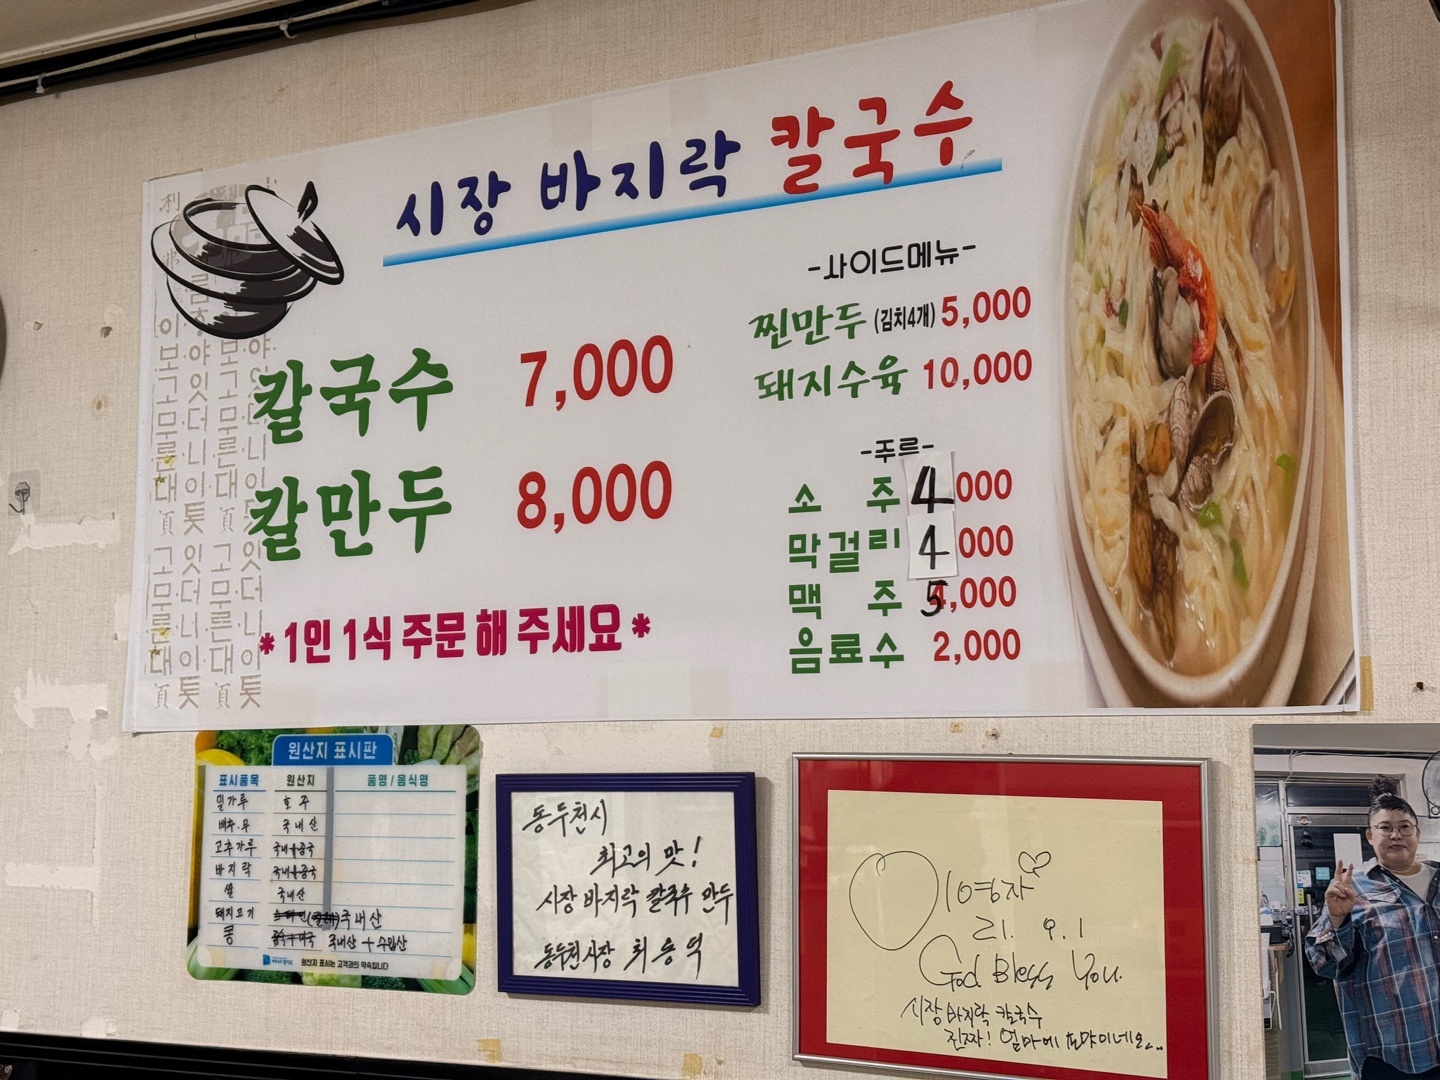 시장 바지락 칼국수
칼국수 7,000
칼만두 8,000
* 1인 1식 주문 해 주세요 *
-사이드메뉴-
찐만두 (김치4개) 5,000
돼지수육 10,000
-주르-
소 주 4,000
막걸리 4,000
맥 주 5,000
음료수 2,000
원산지 표시판
표시품목 원산지 품명/음식명
밀가루 호주
배추.무 국내산
고추가루 국내산+중국
바지락 국내산+중국
쌀 국내산
돼지고기 국내산
콩 국내산 + 수입산
원산지 표시는 고객과의 약속입니다
동두천시
최고의 맛!
시장 바지락 칼국수 만두
동두천시장 최용덕
이영자
21. 9. 1
God Bless You.
시장 바지락 칼국수
진짜!